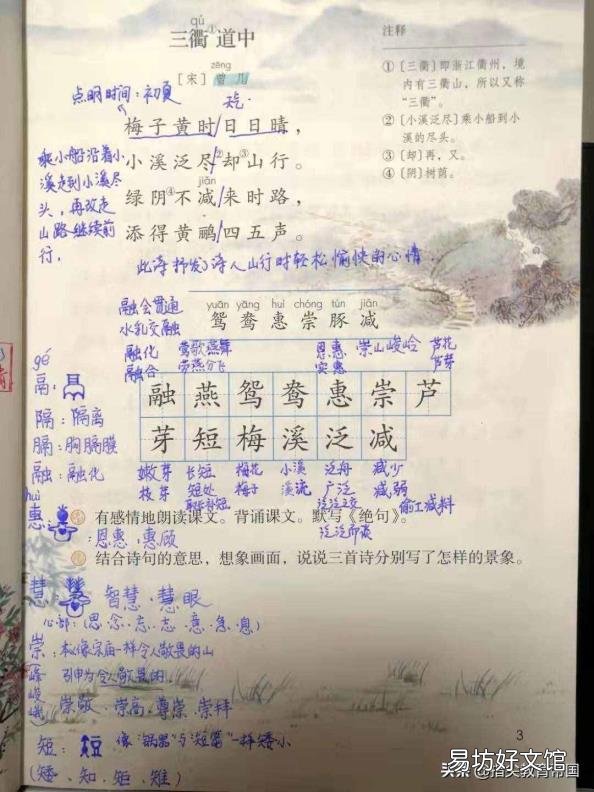 qú
三衢①道中
zēng
[宋] 曾几
注释
①〔三衢〕即浙江衢州，境
内有三衢山，所以又称
“三衢”。
②〔小溪泛尽〕乘小船到小
溪的尽头。
③〔却〕再，又。
④〔阴〕树荫。
点明时间：初夏
梅子黄时/日日晴，
小溪泛尽/②却③山行。
jiǎn
绿阴④不减/来时路，
添得黄鹂/四五声。
乘小船沿着小
溪走到小溪尽
头，再改走
山路继续前
行。
此诗抒发了诗人山行时轻松愉快的心情
yuān yāng huì chóng tún jiǎn
鸳鸯惠崇豚减
融会贯通
水乳交融
融化 莺歌燕舞 恩惠 崇山峻岭 芦花
融合 劳燕分飞 实惠 芦芽
融燕鸳鸯惠崇芦
芽短梅溪泛减
嫩芽 长短 梅花 小溪 泛舟 减少
枝芽 短处 梅子 溪流 广泛 减弱
取长补短 泛泛之交 偷工减料
泛泛而谈
gé
鬲：
隔：隔离
膈：胸膈膜
融：融化
有感情地朗读课文。背诵课文。默写《绝句》。
结合诗句的意思，想象画面，说说三首诗分别写了怎样的景象。
huì
惠：
：恩惠，惠顾
慧： 智慧、慧眼
心部：（思、念、忘、志、意、急、息）
崇：本像宗庙一样令人敬畏的山
引申为令人敬畏的
（峰
峻
峨）
崇敬、崇高、尊崇、崇拜
短： 像“锅器”与“短笛”一样矮小
（矮、知、矩、雉）
3
易坊好文馆
头条@指尖教育帝国